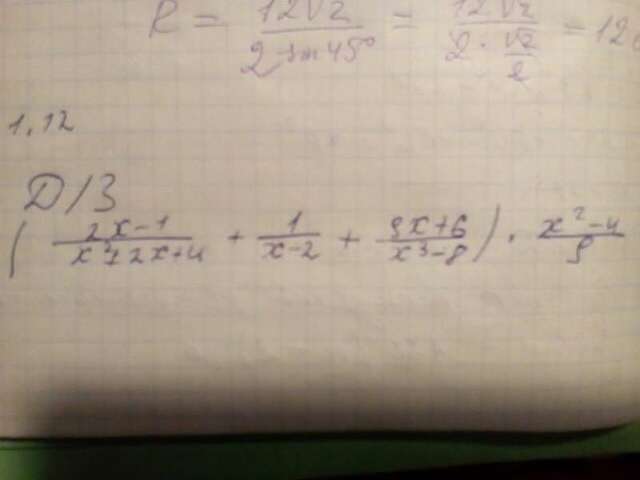 R = 12√2 / 2 sin 45° = 12√2 / 2 · √2/2 = 12
1.12
Д/З
( 2x-1 / x²+2x+4 + 1 / x-2 + 9x+6 / x³-8 ) · x²-4 / 9